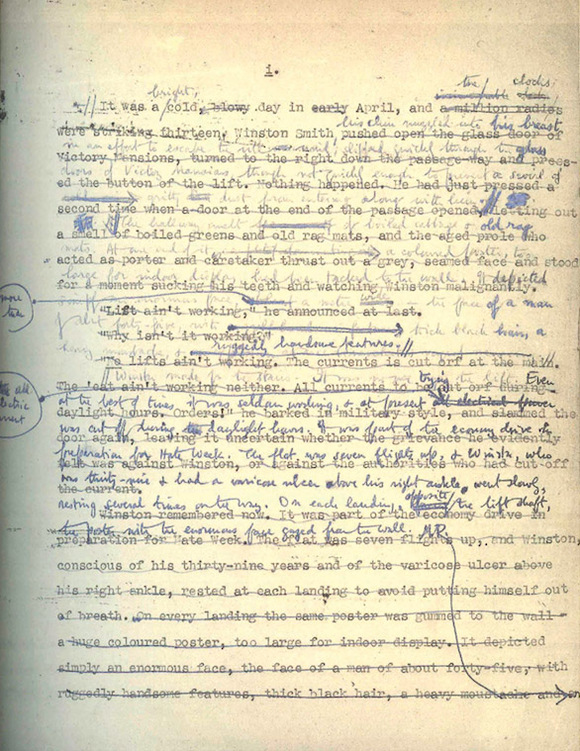 i.
bright, the clocks
It was a cold, blowy day in early April, and a million radios
his chin nuzzled into his breast
were striking thirteen. Winston Smith pushed open the glass door of
in an effort to escape the wind, slipped quickly through the glass
Victory Mansions, turned to the right down the passage-way and press-
doors of Victory Mansions, though not quickly enough to prevent a swirl of
ed the button of the lift. Nothing happened. He had just pressed a
gritty dust from entering along with him.
second time when a door at the end of the passage opened, letting out
The hallway smelt of boiled cabbage & old rag
a smell of boiled greens and old rag mats, and the aged prole who
mats. At one end of it a coloured poster, too
acted as porter and caretaker thrust out a grey, seamed face and stood
large for indoor display, had been tacked to the wall. It depicted
for a moment sucking his teeth and watching Winston malignantly.
simply an enormous face, more than a metre wide - the face of a man
"Lift ain't working," he announced at last.
of about forty-five, with thick black hair, a
"Why isn't it working?"
heavy ruggedly handsome features.
"No lifts ain't working. The currents is cut orf at the main.
Winston made for the stairs. It was no use trying the lift. Even
The 'eat ain't working neither. All currents to be cut orf during
at the best of times it was seldom working, & at present the electric
daylight hours. Orders!" he barked in military style, and slammed the
was cut off during daylight hours. It was part of the economy drive in
door again, leaving it uncertain whether the grievance he evidently
preparation for Hate Week. The flat was seven flights up, & Winston, who
felt was against Winston, or against the authorities who had cut off
was thirty-nine & had a varicose ulcer above his right ankle, went slowly,
the current.
resting several times on the way. On each landing, opposite the lift shaft,
Winston remembered now. It was part of the economy drive in
the poster with the enormous face gazed from the wall. N.P.
preparation for Hate Week. The flat was seven flights up, and Winston,
conscious of his thirty-nine years and of the varicose ulcer above
his right ankle, rested at each landing to avoid putting himself out
of breath. On every landing the same poster was gummed to the wall -
a huge coloured poster, too large for indoor display. It depicted
simply an enormous face, the face of a man of about forty-five, with
ruggedly handsome features, thick black hair, a heavy moustache and an